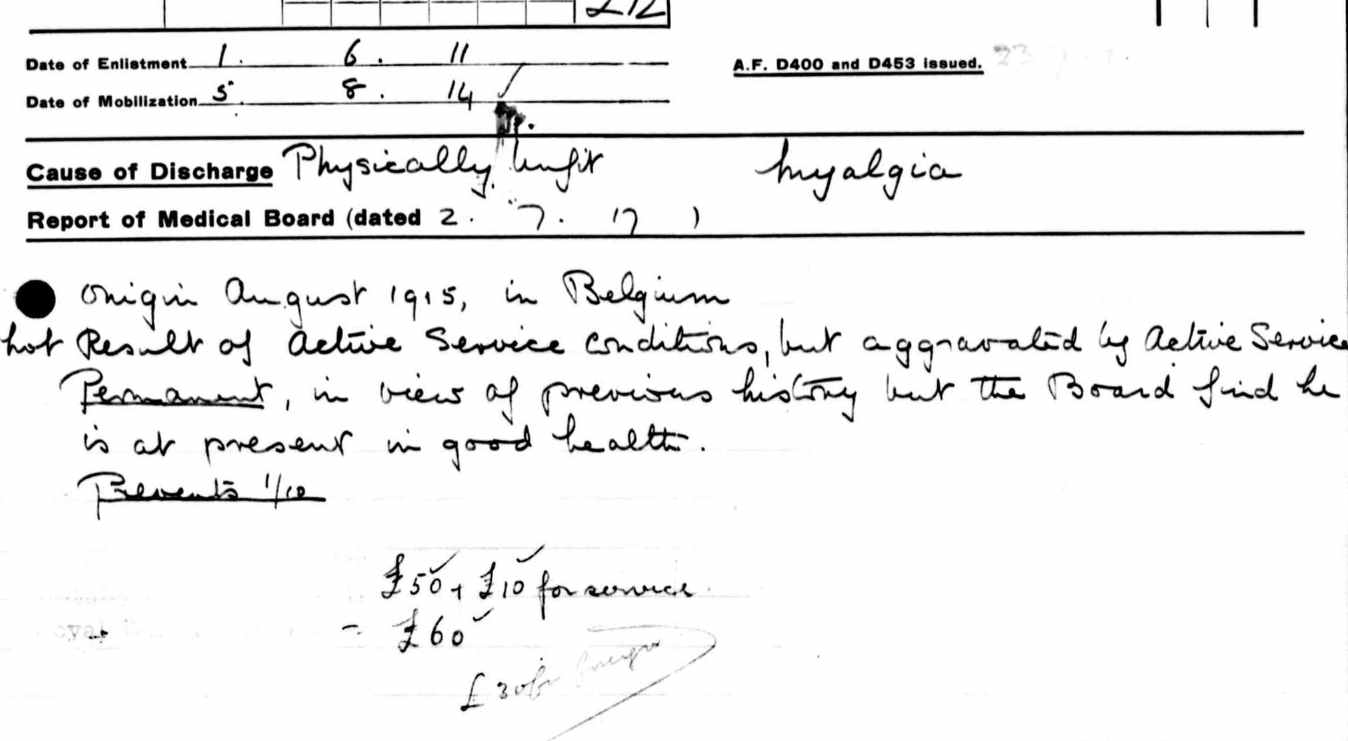 £12
Date of Enlistment 1. 6. 11
A.F. D400 and D453 issued.
Date of Mobilization 5. 8. 14
Cause of Discharge Physically Unfit Myalgia
Report of Medical Board (dated 2. 7. 17 )
Origin August 1915, in Belgium
Not Result of Active Service conditions, but aggravated by Active Service
Permanent, in view of previous history but the Board find he
is at present in good health.
Prevents 1/10
£50 + £10 for service
= £60
£30